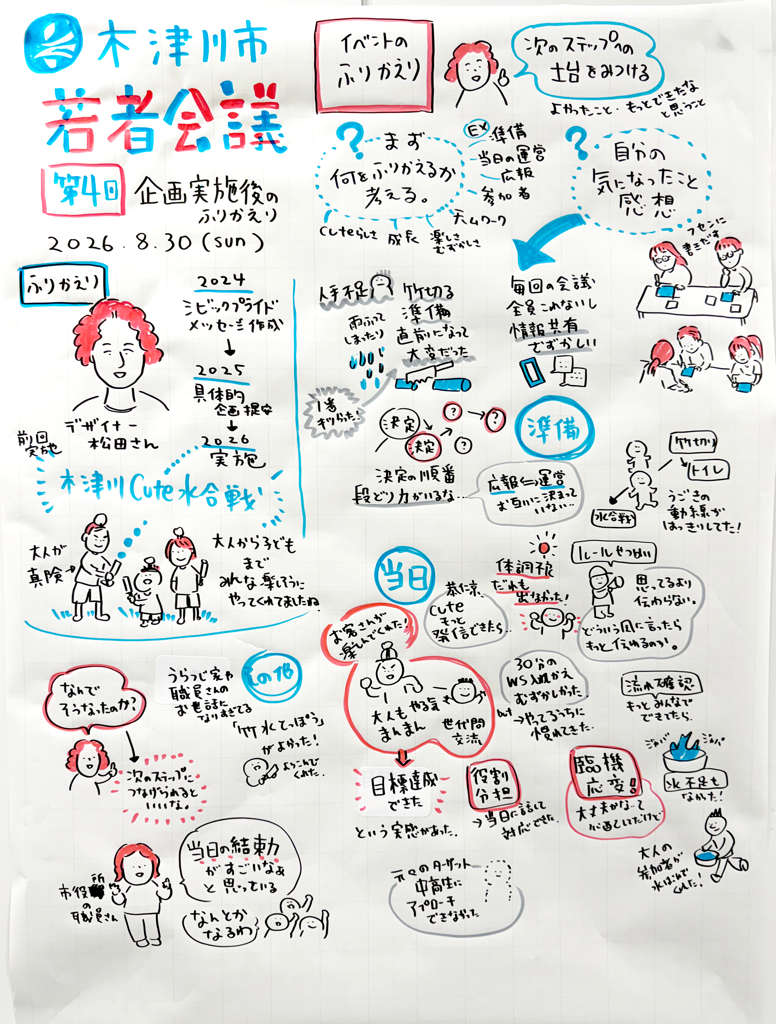 木津川市
若者会議
第4回
企画実施後の
ふりかえり
2026.8.30(sun)
イベントの
ふりかえり
次のステップへの
土台をみつける
よかったこと・もっとできたな
と思うこと
?
まず
何をふりかえるか
考える。
EX
準備
当日の運営
広報
参加者
チームワーク
楽しさ
むずかしさ
成長
Cuteらしさ
?
自分の
気になったこと
感想
フセンに
書きだす
ふりかえり
デザイナー
松田さん
2024
シビックプライド
メッセージ作成
2025
具体的
企画提案
2026
実施
前回
実施
木津川Cute水合戦
大人が
真険
大人から子ども
まで
みんな楽しそうに
やってくれてましたね
人手不足
雨ふって
しまったり
竹切る
準備
直前になって
大変だった
1番
きつかった!
毎回の会議
全員これないし
情報共有
むずかしい
準備
決定
決定
?
?
?
決定の順番
段どり力がいるな…
広報⇆運営
お互いに決まって
いない…
竹切り
トイレ
水合戦
うごきの
動線が
はっきりしてた!
当日
お客さんが
楽しんでくれた!
大人も
やる気
まんまん
世代間
交流
目標達成
できた
という実感があった。
恭仁京、
Cute
もっと
発信できたら
体調不良
だれも
出なかった!
ルールせつめい
思ってるより
伝わらない。
どういう風に言ったら
もっと伝わるのか。
30分の
WS入れかえ
むずかしかった
but
→やってるうちに
慣れてきた
流れ確認
もっとみんなで
できてたら
役割
分担
→当日に話して
対応できた。
臨機
応変!!
大丈夫かなーって
心配していたけど
ジャバ
ジャバ
水不足も
なかった!
大人の
参加者が
水はこんで
くれた!
元々のターゲット
中高生に
アプローチ
できなかった
なんで
そうなったのか?
次のステップに
つなげられると
いいな。
その他
うらつじ家や
職員さんの
お世話に
なりすぎてる
「竹水てっぽう」
がよかった!
よろこんで
くれた。
市役所
の
職員さん
当日の結束力
がすごいなぁ
と思っている
なんとか
なるわ